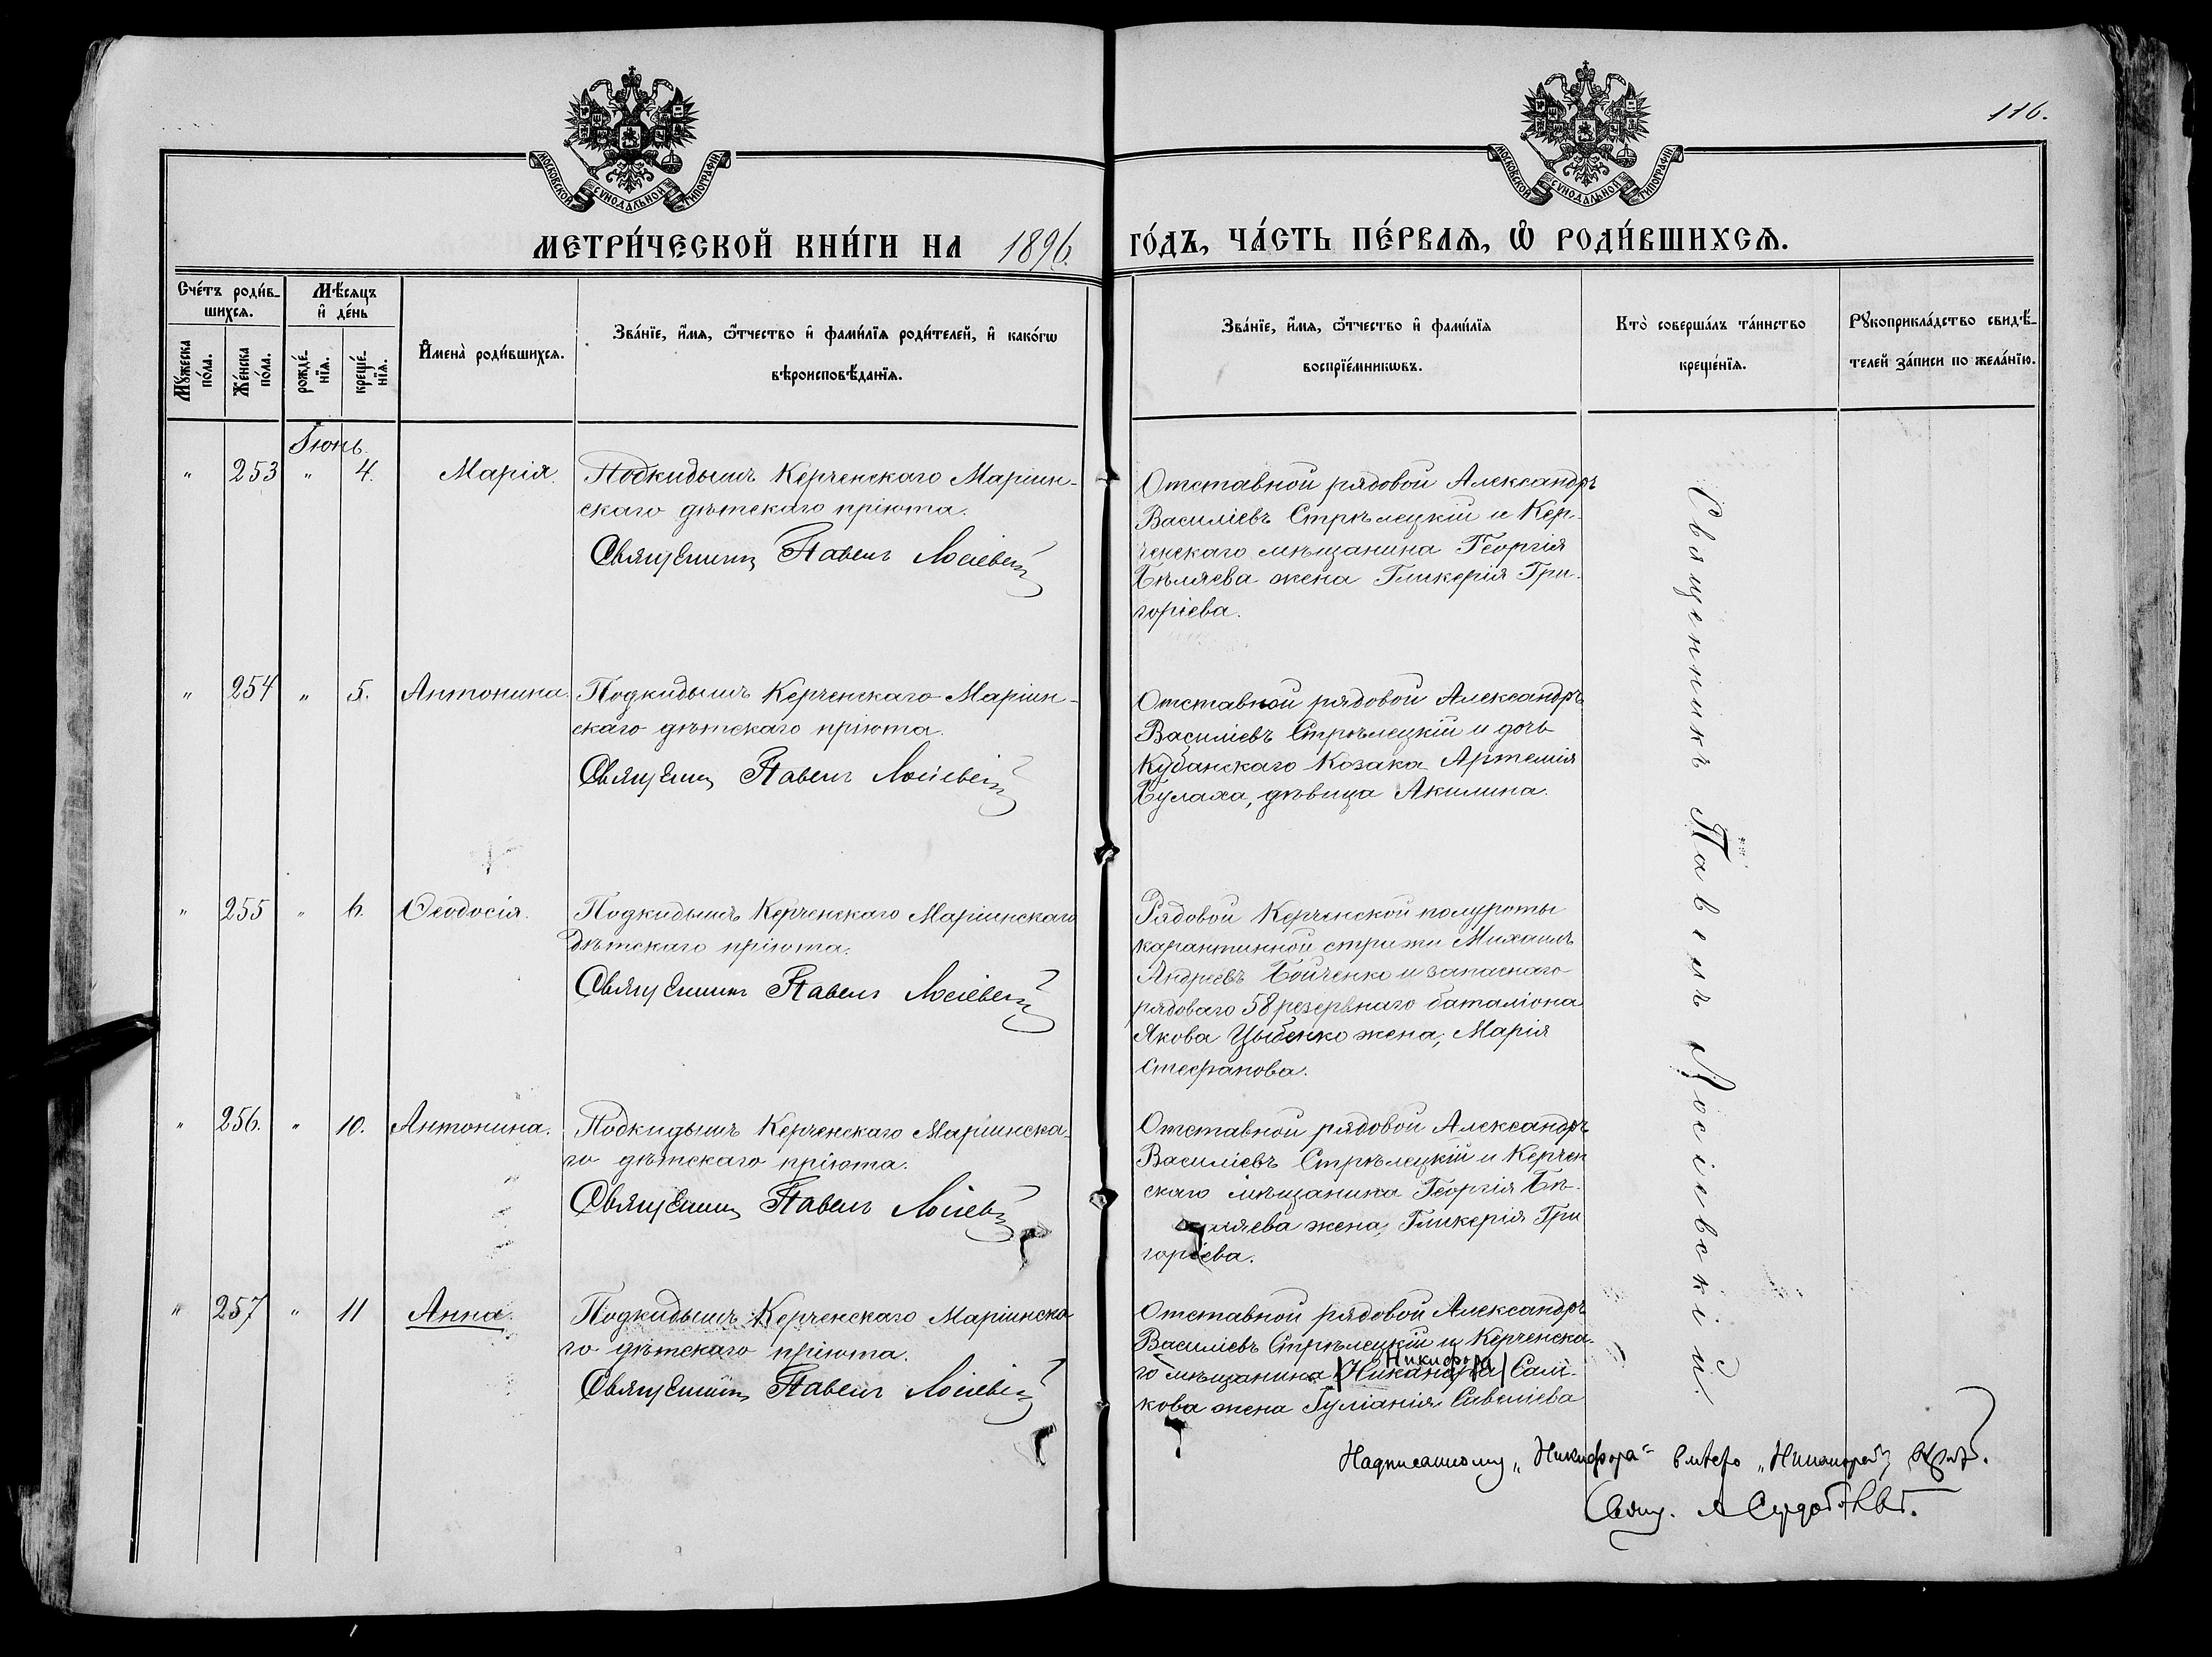 116.
МОСКОВСКОЙ СУНОДАЛЬНОЙ ТИПОГРАФІИ
МОСКОВСКОЙ СУНОДАЛЬНОЙ ТИПОГРАФІИ
МЕТРИ́ЧЕСКОЙ КНИ́ГИ НА 1896. ГО́ДЪ, ЧА́СТЬ ПЕ́РВАѦ, Ѡ҆ РОДИ́ВШИХСѦ.
Сче́тъ роди́в-
шихсѧ.
Мꙋ́жеска по́ла.
Же́нска по́ла.
Мѣ́сѧцъ
и҆ де́нь
рожде́-
нїѧ.
креще́-
нїѧ.
И҆мена̀ роди́вшихсѧ.
Зва́нїе, и҆́мѧ, ѻ҆́тчество и҆ фами́лїѧ роди́телей, и҆ како́гѡ
вѣроисповѣ́данїѧ.
Зва́нїе, и҆́мѧ, ѻ҆́тчество и҆ фами́лїѧ
воспрїе́мникѡвъ.
Кто̀ соверша́лъ та́инство
креще́нїѧ.
Рꙋкоприкла́дство свидѣ́-
телей за́писи по жела́нїю.
Іюнь.
" 253 " 4. Марія.
Подкидышъ Керченскаго Маріин-
скаго дѣтскаго пріюта.
Священникъ Павелъ Лосіевскій
Отставной рядовой Александръ
Василіевъ Стрѣлецкій и Кер-
ченскаго мѣщанина Георгія
Бѣляева жена Гликерія Гри-
горіева.
" 254 " 5. Антонина.
Подкидышъ Керченскаго Маріин-
скаго дѣтскаго пріюта.
Священникъ Павелъ Лосіевскій
Отставной рядовой Александръ
Василіевъ Стрѣлецкій и дочь
Кубанскаго Козака Артемія
Булаха, дѣвица Акилина.
" 255 " 6. Ѳеодосія.
Подкидышъ Керченскаго Маріинскаго
дѣтскаго пріюта.
Священникъ Павелъ Лосіевскій
Рядовой Керченской полуроты
карантинной стражи Михаилъ
Андреевъ Бойченко и запаснаго
рядоваго 58 резервнаго баталіона
Якова Цыбенко жена, Марія
Стефанова.
" 256. " 10. Антонина.
Подкидышъ Керченскаго Маріинска-
го дѣтскаго пріюта.
Священникъ Павелъ Лосіевскій
Отставной рядовой Александръ
Василіевъ Стрѣлецкій и Керчен
скаго мѣщанина Георгія Бѣ-
ляева жена, Гликерія Гри
горіева.
" 257 " 11 Анна.
Подкидышъ Керченскаго Маріинска
го дѣтскаго пріюта.
Священникъ Павелъ Лосіевскій
Отставной рядовой Александръ
Василіевъ Стрѣлецкій и Керченска-
Никифора
го мѣщанина Никанора Саль-
кова жена Гуліанія Савеліева
Священникъ Павелъ Лосіевскій.
Надписанному „Никифора" вмѣсто „Никанора"
Свящ. А